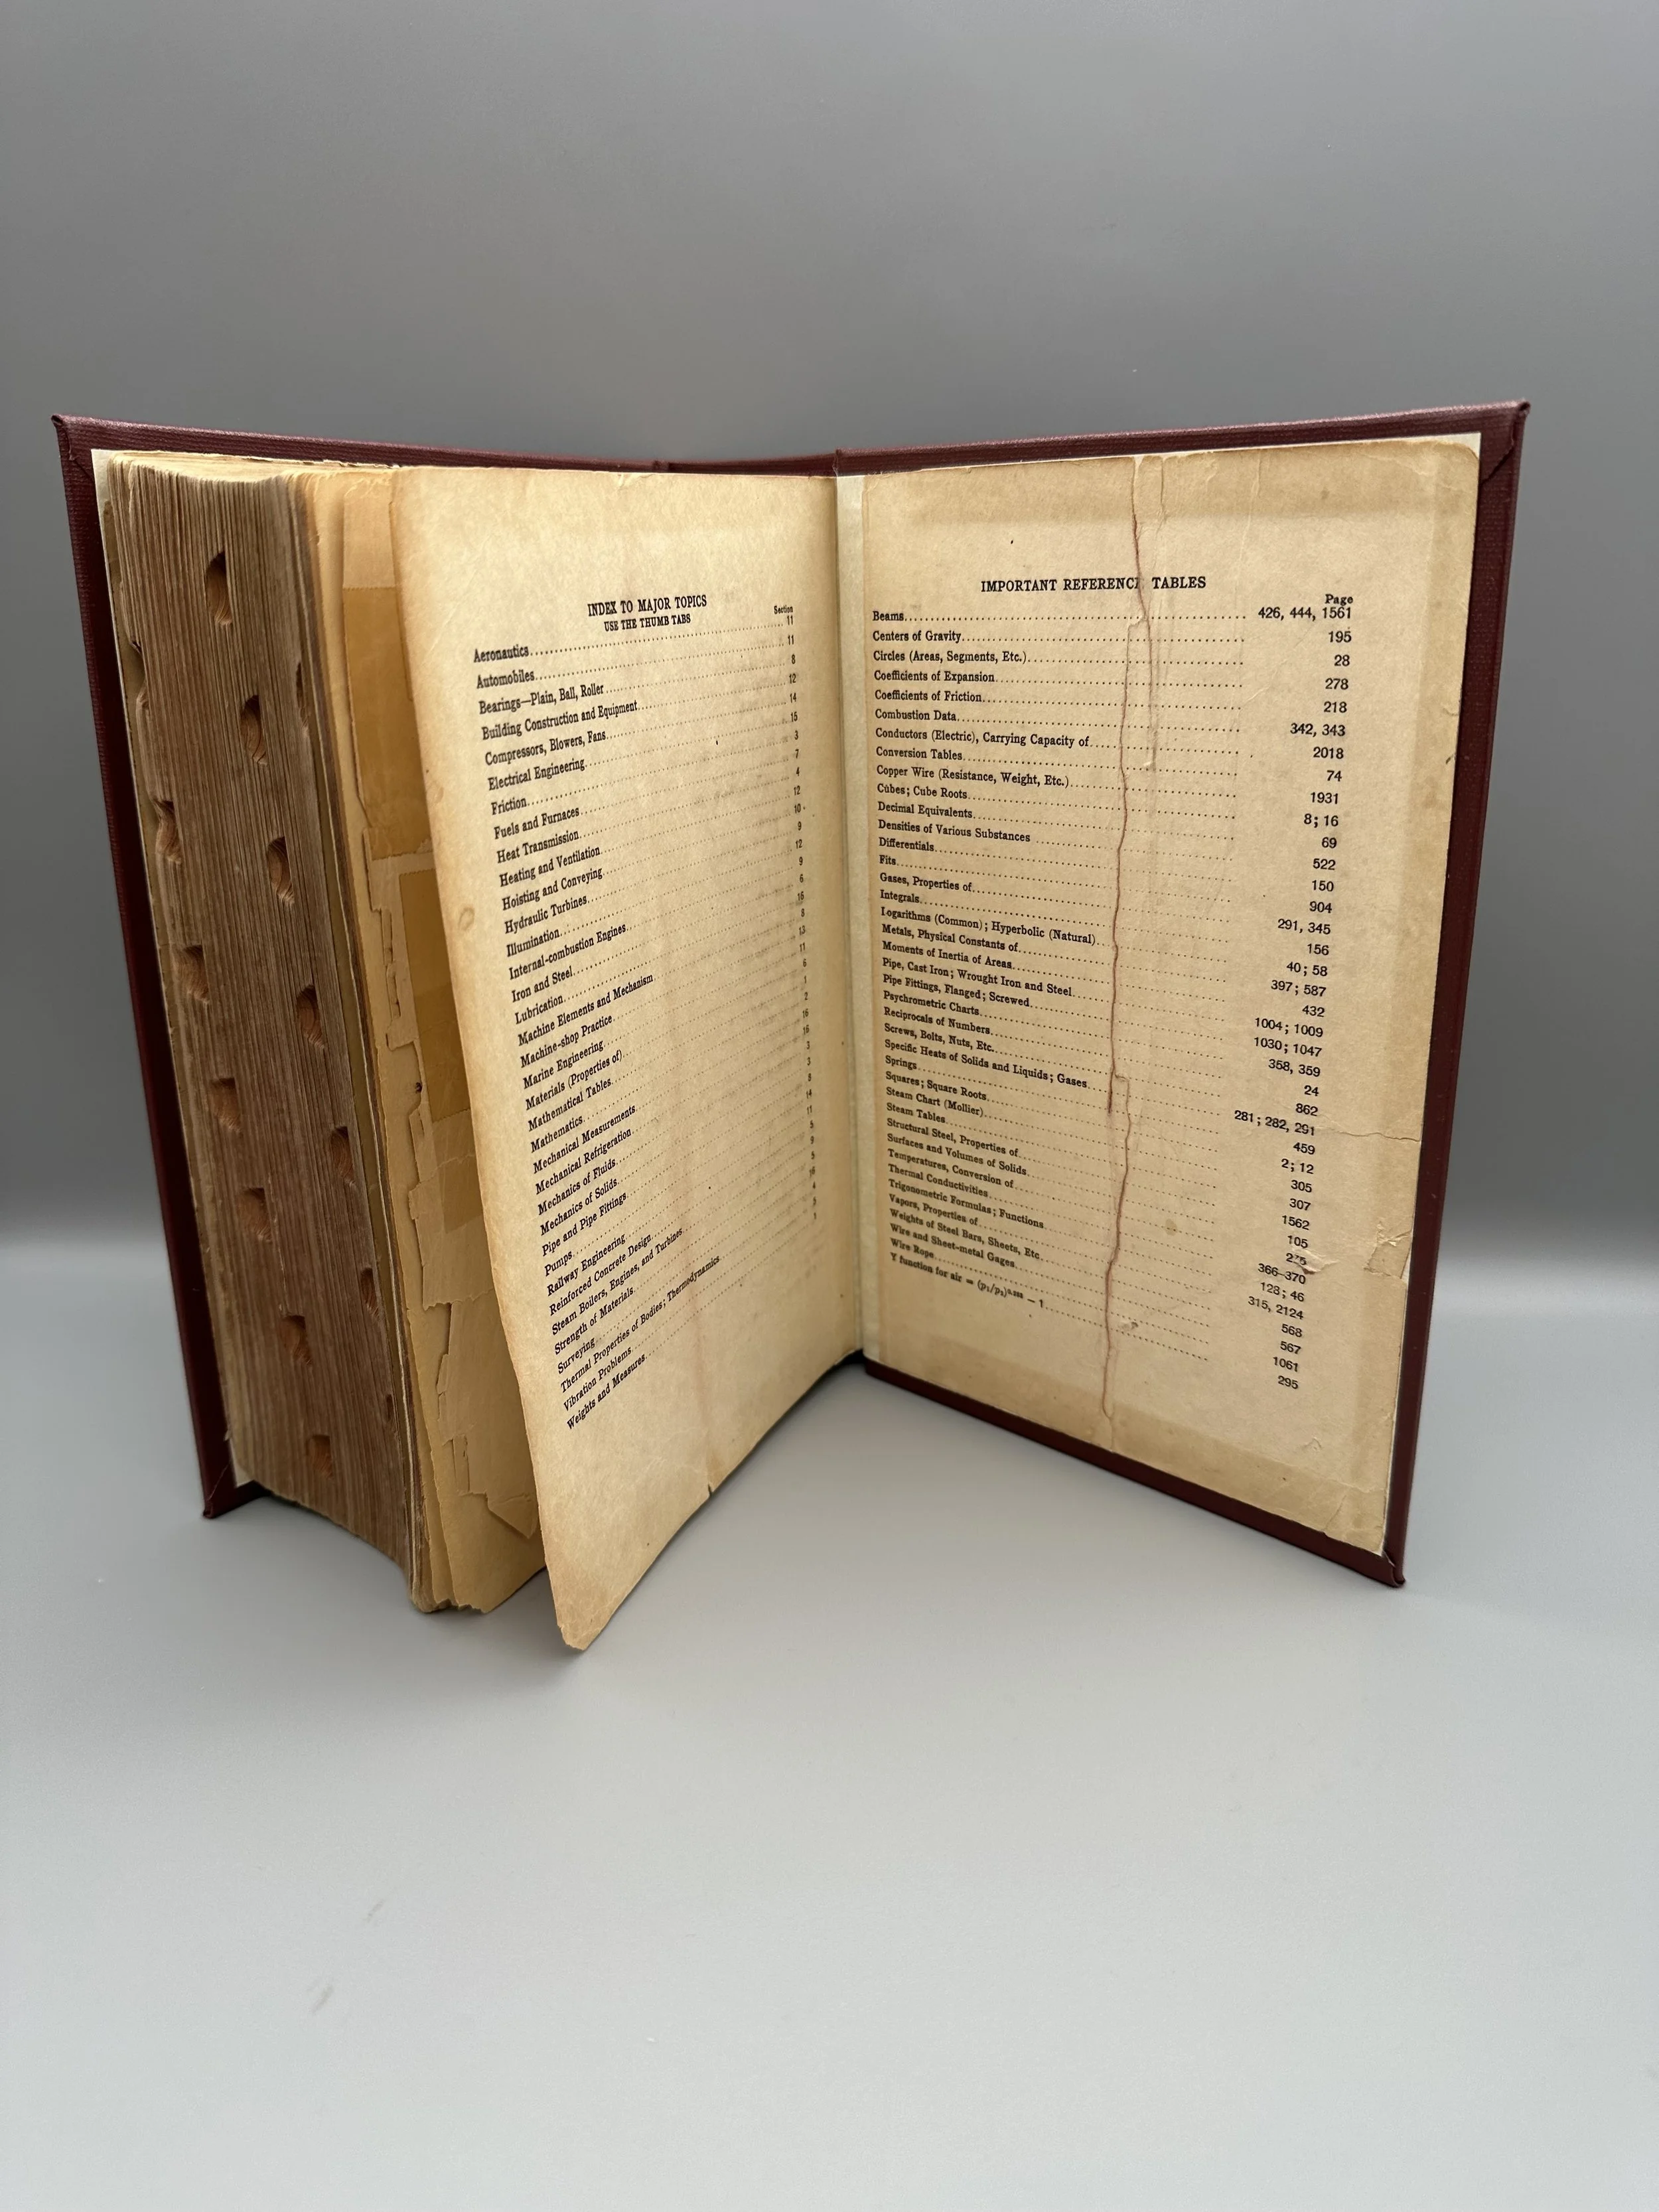 INDEX TO MAJOR TOPICS
USE THE THUMB TABS
Section
Aeronautics 11
Automobiles 11
Bearings—Plain, Ball, Roller 8
Building Construction and Equipment 12
Compressors, Blowers, Fans 14
Electrical Engineering 15
Friction 3
Fuels and Furnaces 7
Heat Transmission 4
Heating and Ventilation 12
Hoisting and Conveying 10
Hydraulic Turbines 9
Illumination 12
Internal-combustion Engines 9
Iron and Steel 6
Lubrication
Machine Elements and Mechanism 8
Machine-shop Practice 13
Marine Engineering 11
Materials (Properties of) 6
Mathematical Tables 1
Mathematics 2
Mechanical Measurements 16
Mechanical Refrigeration
Mechanics of Fluids 3
Mechanics of Solids 3
Pipe and Pipe Fittings 8
Pumps 14
Railway Engineering 11
Reinforced Concrete Design
Steam Boilers, Engines, and Turbines 9
Strength of Materials 5
Surveying 16
Thermal Properties of Bodies; Thermodynamics 4
Vibration Problems
Weights and Measures 1
IMPORTANT REFERENCE TABLES
Page
Beams 426, 444, 1561
Centers of Gravity 195
Circles (Areas, Segments, Etc.) 28
Coefficients of Expansion 278
Coefficients of Friction 218
Combustion Data 342, 343
Conductors (Electric), Carrying Capacity of 2018
Conversion Tables 74
Copper Wire (Resistance, Weight, Etc.) 1931
Cubes; Cube Roots 8; 16
Decimal Equivalents 69
Densities of Various Substances 522
Differentials 150
Fits 904
Gases, Properties of 291, 345
Integrals 156
Logarithms (Common); Hyperbolic (Natural) 40; 58
Metals, Physical Constants of 397; 587
Moments of Inertia of Areas 432
Pipe, Cast Iron; Wrought Iron and Steel 1004; 1009
Pipe Fittings, Flanged; Screwed 1030; 1047
Psychrometric Charts 358, 359
Reciprocals of Numbers 24
Screws, Bolts, Nuts, Etc. 862
Specific Heats of Solids and Liquids; Gases 281; 282, 291
Springs 459
Squares; Square Roots 2; 12
Steam Chart (Mollier) 305
Steam Tables 307
Structural Steel, Properties of 1562
Surfaces and Volumes of Solids 105
Temperatures, Conversion of
Thermal Conductivities 366–370
Trigonometric Formulas; Functions 128; 46
Vapors, Properties of 315, 2124
Weights of Steel Bars, Sheets, Etc 568
Wire and Sheet-metal Gages 567
Wire Rope 1061
Y function for air = (p₁/p₂)⁰·²⁸³ − 1 295